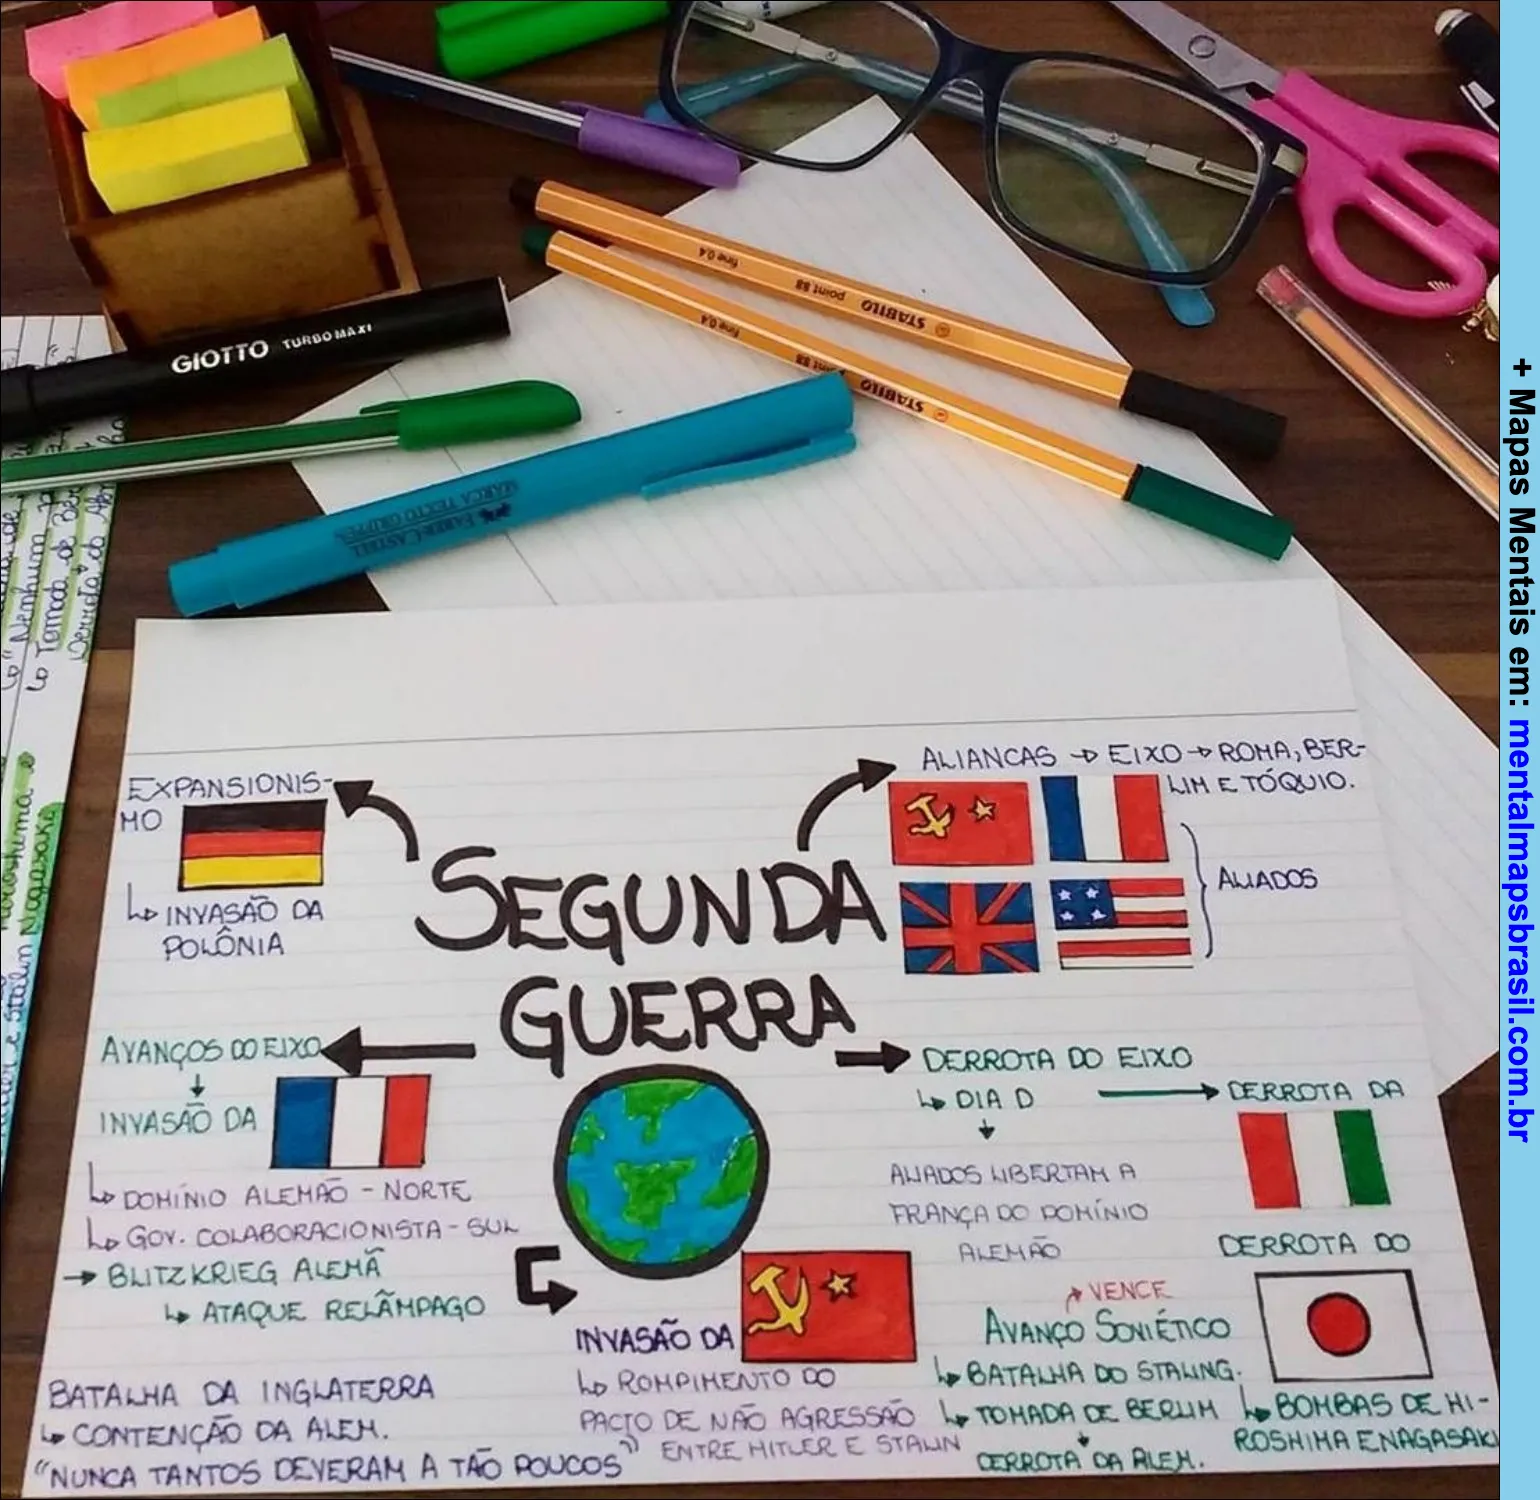 GIOTTO TURBO MAXI
fine 0.4
point 88
STABILO
fine 0.4
point 88
STABILO
FABER-CASTELL
MARCA TEXTO GRIFPEN
"Nenhum
Tomada de Ber
Derrota do
Hiroshima e
Nagasaki
e Stalin
EXPANSIONIS-
MO
↳ INVASÃO DA
POLÔNIA
SEGUNDA
GUERRA
ALIANCAS → EIXO → ROMA, BER-
LIM E TÓQUIO.
ALIADOS
AVANÇOS DO EIXO
INVASÃO DA
↳ DOMÍNIO ALEMÃO - NORTE
↳ GOV. COLABORACIONISTA - SUL
→ BLITZKRIEG ALEMÃ
↳ ATAQUE RELÂMPAGO
BATALHA DA INGLATERRA
↳ CONTENÇÃO DA ALEM.
"NUNCA TANTOS DEVERAM A TÃO POUCOS"
INVASÃO DA
↳ ROMPIMENTO DO
PACTO DE NÃO AGRESSÃO
ENTRE HITLER E STALIN
DERROTA DO EIXO
↳ DIA D → DERROTA DA
ALIADOS LIBERTAM A
FRANÇA DO DOMÍNIO
ALEMÃO
VENCE
AVANÇO SOVIÉTICO
↳ BATALHA DO STALING.
↳ TOMADA DE BERLIM
DERROTA DA ALEM.
DERROTA DO
↳ BOMBAS DE HI-
ROSHIMA E NAGASAKI
+ Mapas Mentais em: mentalmapsbrasil.com.br